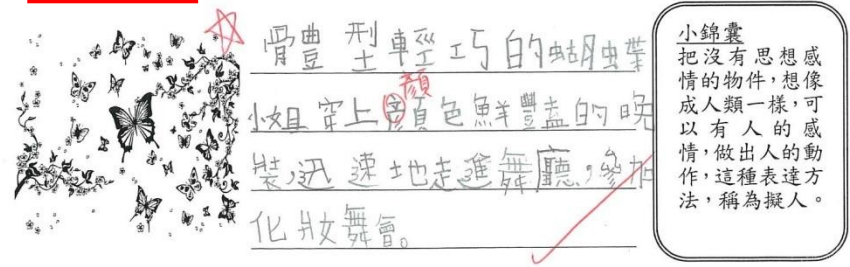 體型輕巧的蝴蝶
小姐穿上顏色鮮豔的晚
顏
裝,迅速地走進舞廳,參加
化妝舞會。
小錦囊
把沒有思想感
情的物件,想像
成人類一樣,可
以有人的感
情,做出人的動
作,這種表達方
法,稱為擬人。